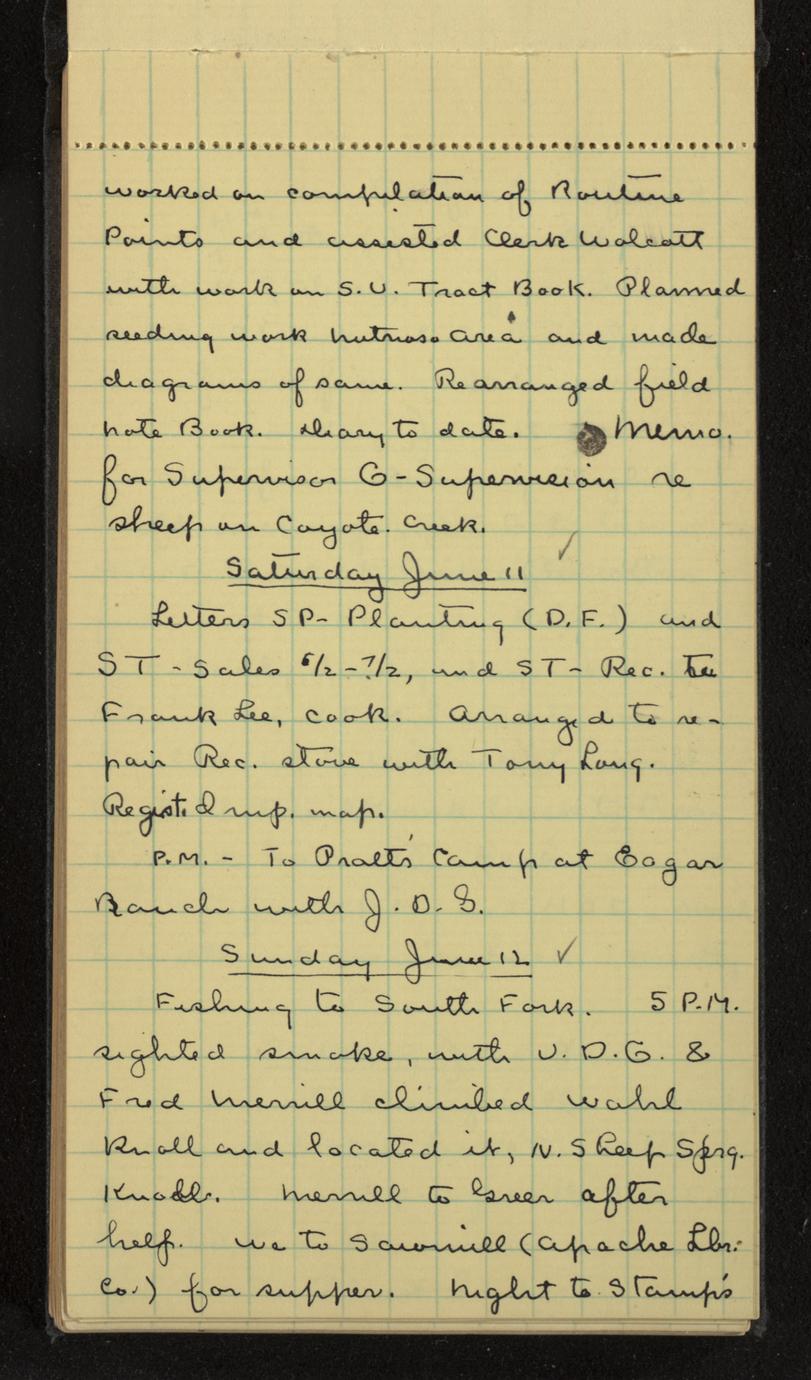 worked on compilation of Routine
Points and assisted Clerk Wolcott
with work on S.U. Tract Book. Planned
seeding work nutrioso area and made
diagrams of same. Rearranged field
note Book. Diary to date. Memo.
for Supervisor G-Supervision re
sheep on Coyote Creek.
Saturday June 11 ✓
Letters SP- Planting (D.F.) and
ST - Sales 6/2-7/2, and ST- Rec.
Frank Lee, cook. Arranged to re-
pair Rec. stove with Tony Long.
Regist'd map.
P.M. - To Pratt's Camp at Eagar
Ranch with J.D.G.
Sunday June 12 ✓
Fishing to South Fork. 5 P.M.
sighted smoke, with J.D.G. &
Fred Merrill climbed Wahl
Knoll and located it, N. Sheep Sprg.
Knoll. Merrill to Greer after
help. we to Sawmill (Apache Lbr.
Co.) for supper. Night to Stamp's